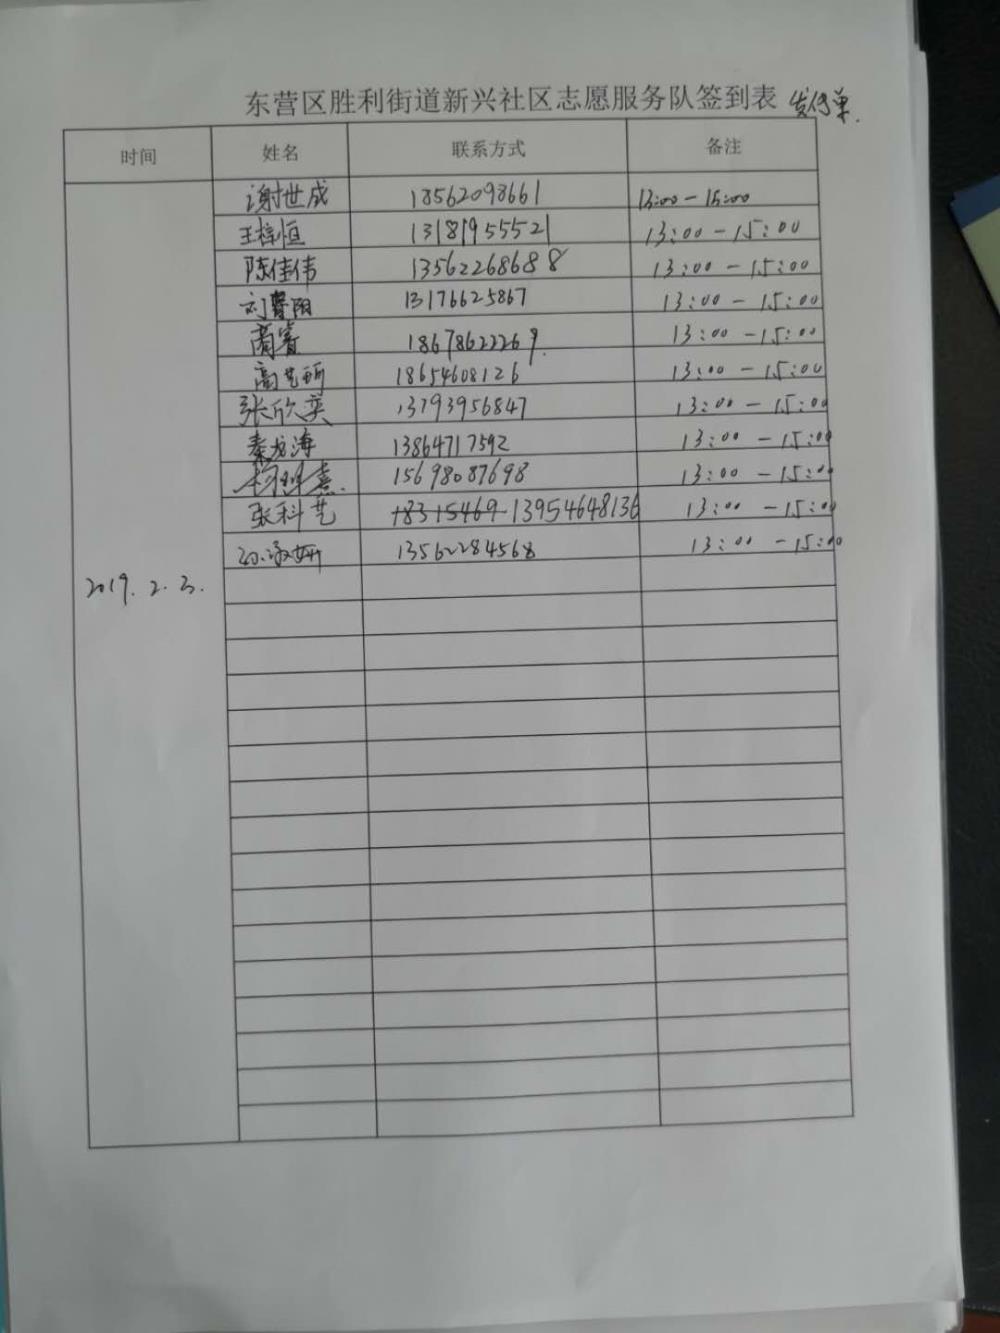 东营区胜利街道新兴社区志愿服务队签到表 发传单.
时间 姓名 联系方式 备注
谢世成 18562098661 13:00-15:00
王梓恒 13181955521 13:00-15:00
陈佳伟 13562268688 13:00-15:00
刘春阳 13176625867 13:00-15:00
蔺睿 18678622269. 13:00-15:00
高艺 18654608126 13:00-15:00
张欣奕 13793956847 13:00-15:00
秦龙海 13864717592 13:00-15:00
15698087698 13:00-15:00
张科艺 18315469-13954648136 13:00-15:00
13562284568 13:00-15:00
2019.2.3.